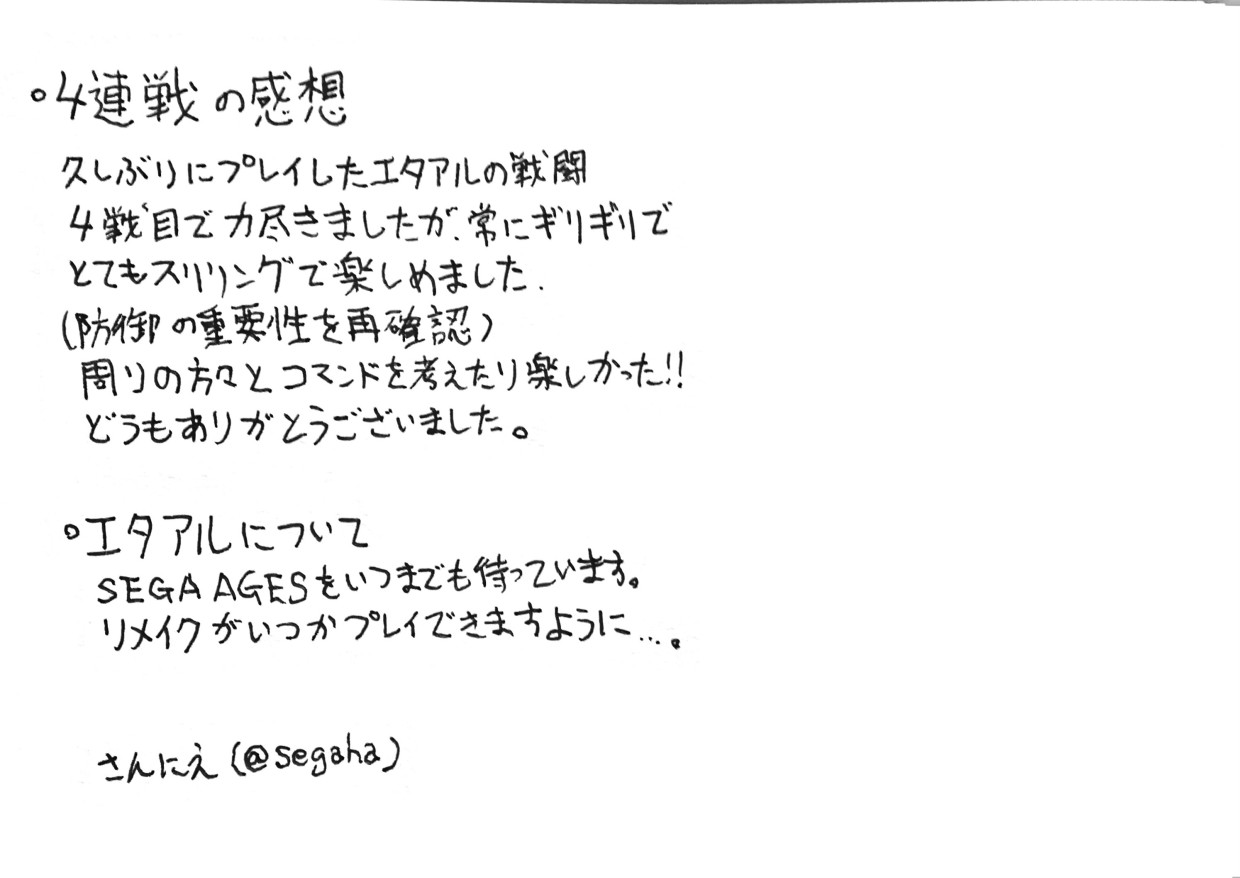 ○4連戦の感想
久しぶりにプレイしたエタアルの戦闘
4戦目で力尽きましたが、常にギリギリで
とてもスリリングで楽しめました.
(防御の重要性を再確認)
周りの方々とコマンドを考えたり楽しかった!!
どうもありがとうございました。
○エタアルについて
SEGA AGESをいつまでも待っています。
リメイクがいつかプレイできますように…。
さんにえ(@segaha)